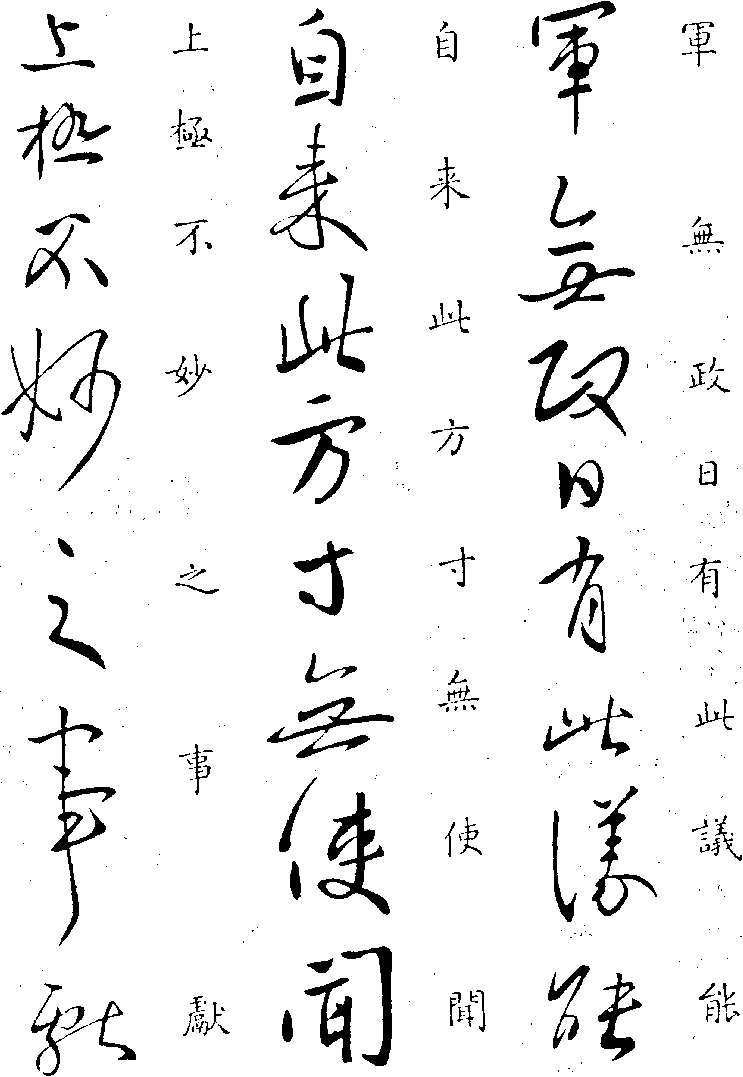 軍無政日有此議能
軍無政日有此議能
自来此方寸無使聞
自来此方寸無使聞
上極不妙之事獻
上極不妙之事獻